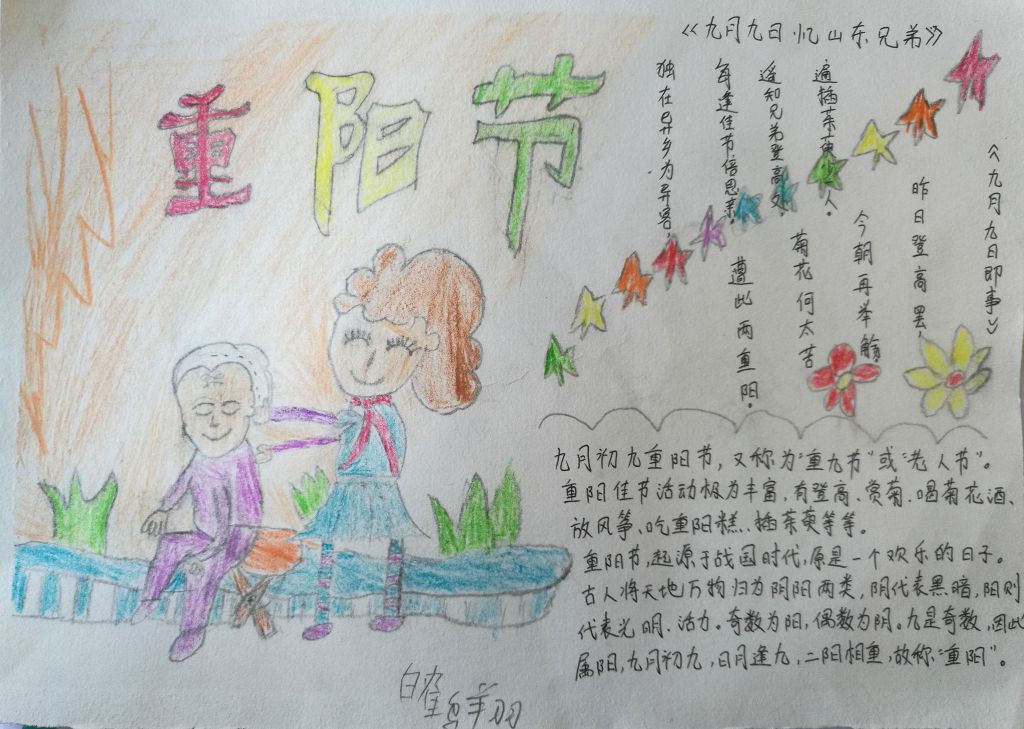 重阳节
《九月九日忆山东兄弟》
独在异乡为异客,
每逢佳节倍思亲.
遥知兄弟登高处,
遍插茱萸人.
《九月九日即事》
昨日登高罢,
今朝再举觞.
菊花何太苦
遭此两重阳.
九月初九重阳节,又称为“重九节”或“老人节”。
重阳佳节活动极为丰富,有登高、赏菊、喝菊花酒、
放风筝、吃重阳糕、插茱萸等等。
重阳节,起源于战国时代,原是一个欢乐的日子。
古人将天地万物归为阴阳两类,阴代表黑暗,阳则
代表光明、活力。奇数为阳,偶数为阴。九是奇数,因此
属阳,九月初九,日月逢九,二阳相重,故称“重阳”。
白鹤翔